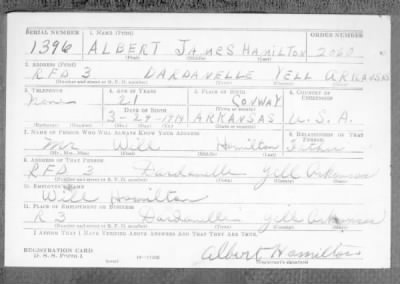 SERIAL NUMBER 1. NAME (Print) ORDER NUMBER
1396 ALBERT JAMES HAMILTON 2060
(First) (Middle) (Last)
2. ADDRESS (Print)
RFD 3 DARDANELLE YELL ARKANSAS
(Number and street or R. F. D. number) (Town) (County) (State)
3. TELEPHONE 4. AGE IN YEARS 5. PLACE OF BIRTH 6. COUNTRY OF CITIZENSHIP
None 21 CONWAY
DATE OF BIRTH (Town or county)
3-29-1919 ARKANSAS U.S.A.
(Exchange) (Number) (Mo.) (Day) (Yr.) (State or country)
7. NAME OF PERSON WHO WILL ALWAYS KNOW YOUR ADDRESS 8. RELATIONSHIP OF THAT PERSON
Mr Will Hamilton Father
(Mr., Mrs., Miss) (First) (Middle) (Last)
9. ADDRESS OF THAT PERSON
RFD 3 Dardanelle Yell Arkansas
(Number and street or R. F. D. number) (Town) (County) (State)
10. EMPLOYER'S NAME
Will Hamilton
11. PLACE OF EMPLOYMENT OR BUSINESS
R 3 Dardanelle Yell Arkansas
(Number and street or R. F. D. number) (Town) (County) (State)
I AFFIRM THAT I HAVE VERIFIED ABOVE ANSWERS AND THAT THEY ARE TRUE.
REGISTRATION CARD
D. S. S. FORM 1 (over) Albert Hamilton
(Registrant's signature)